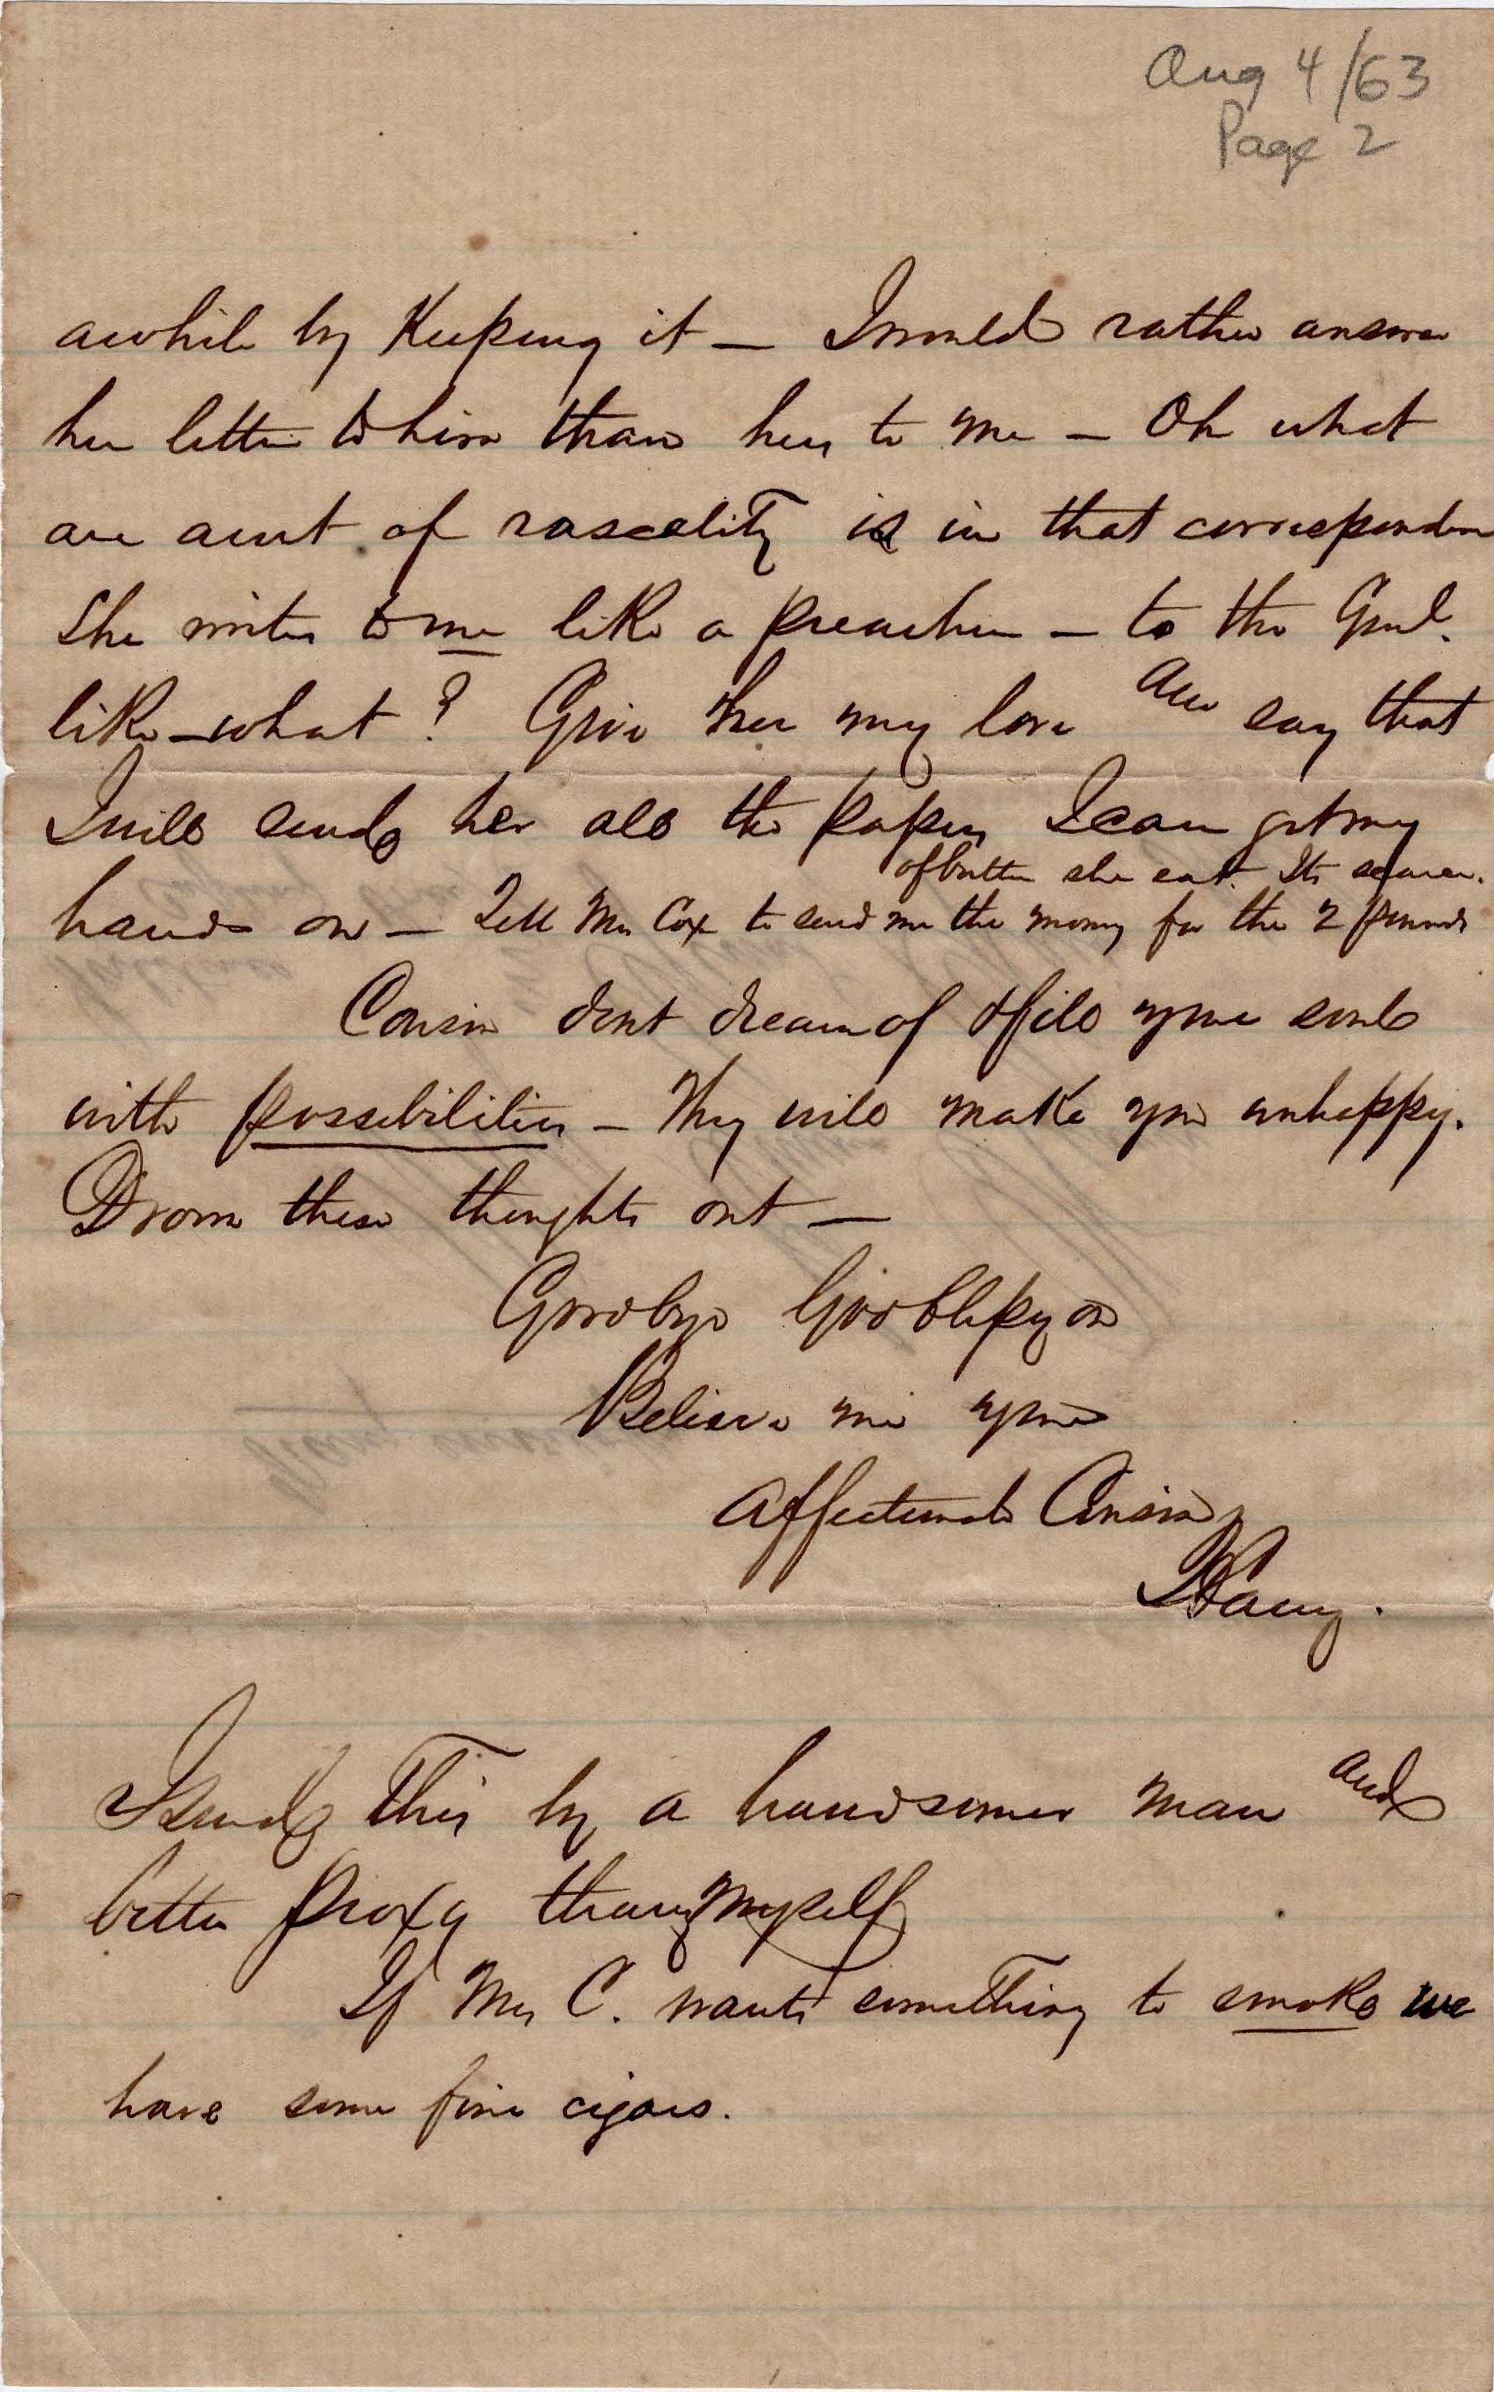 Aug 4/63
Page 2
awhile by Keeping it — I would rather answer
her letter to him than hers to me — Oh what
an amt of rascality is in that corresponden
She writes to me like a preacher — to the Genl.
like – what? Give her my love and say that
I will send her all the papers I can get my
of butter she eat. Its scarce.
hands on — Tell Mrs Cox to send me the money for the 2 pounds
Cousin dont dream of & fill your soul
with possibilities — They will make you unhappy.
Drown these thoughts out —
Goodbye God bless you
Believe me your
Affectionate Cousin
Harry.
I send this by a handsomer man and
better proxy than myself
If Mrs C. wants something to smoke we
have some fine cigars.